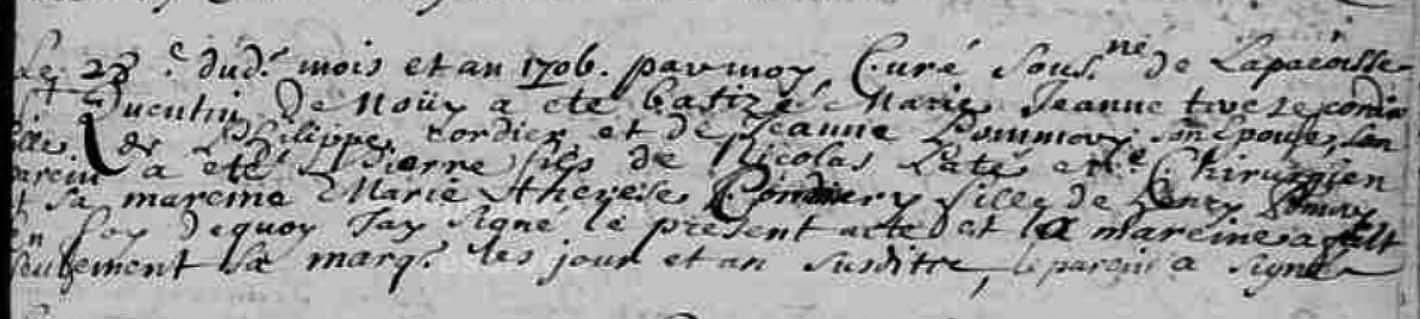 Le 28.e dud.t mois et an 1706. par moy Curé sous.né de Laparoisse
St Quentin De Noüy a ete batizé Marie Jeanne
fille de Philippe Cordier et de Jeanne Pommery son Epouse, son
parein a eté Pierre fils de Nicolas Laté m.e Chirurgien
et sa mareine Marie therese fille de henry
en foy dequoy Jay signé le present acte et la mareine a fait
seulement sa marq.e les jour et an susditte, le parein a signé